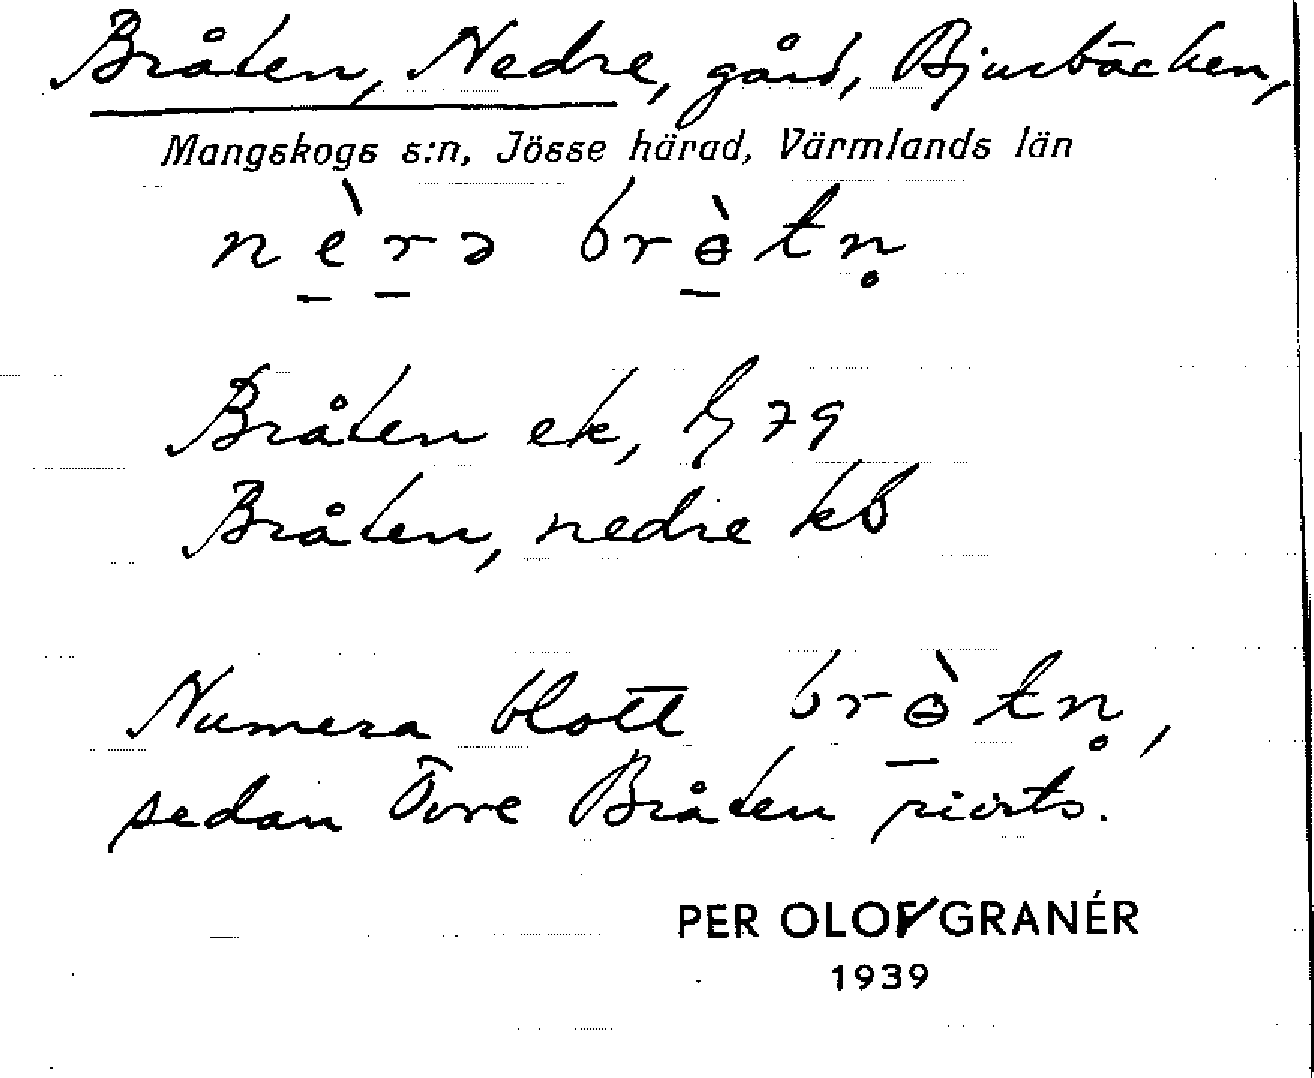 Bråten, Nedre, gård, Bjurbäcken,
Mangskogs s:n, Jösse härad, Värmlands län
nèrə brɵ̀tn̥
Bråten ek, G 79
Bråten, nedre kb
Numera blott brɵ̀tn̥,
sedan Övre Bråten rivits.
PER OLOF GRANÉR
1939